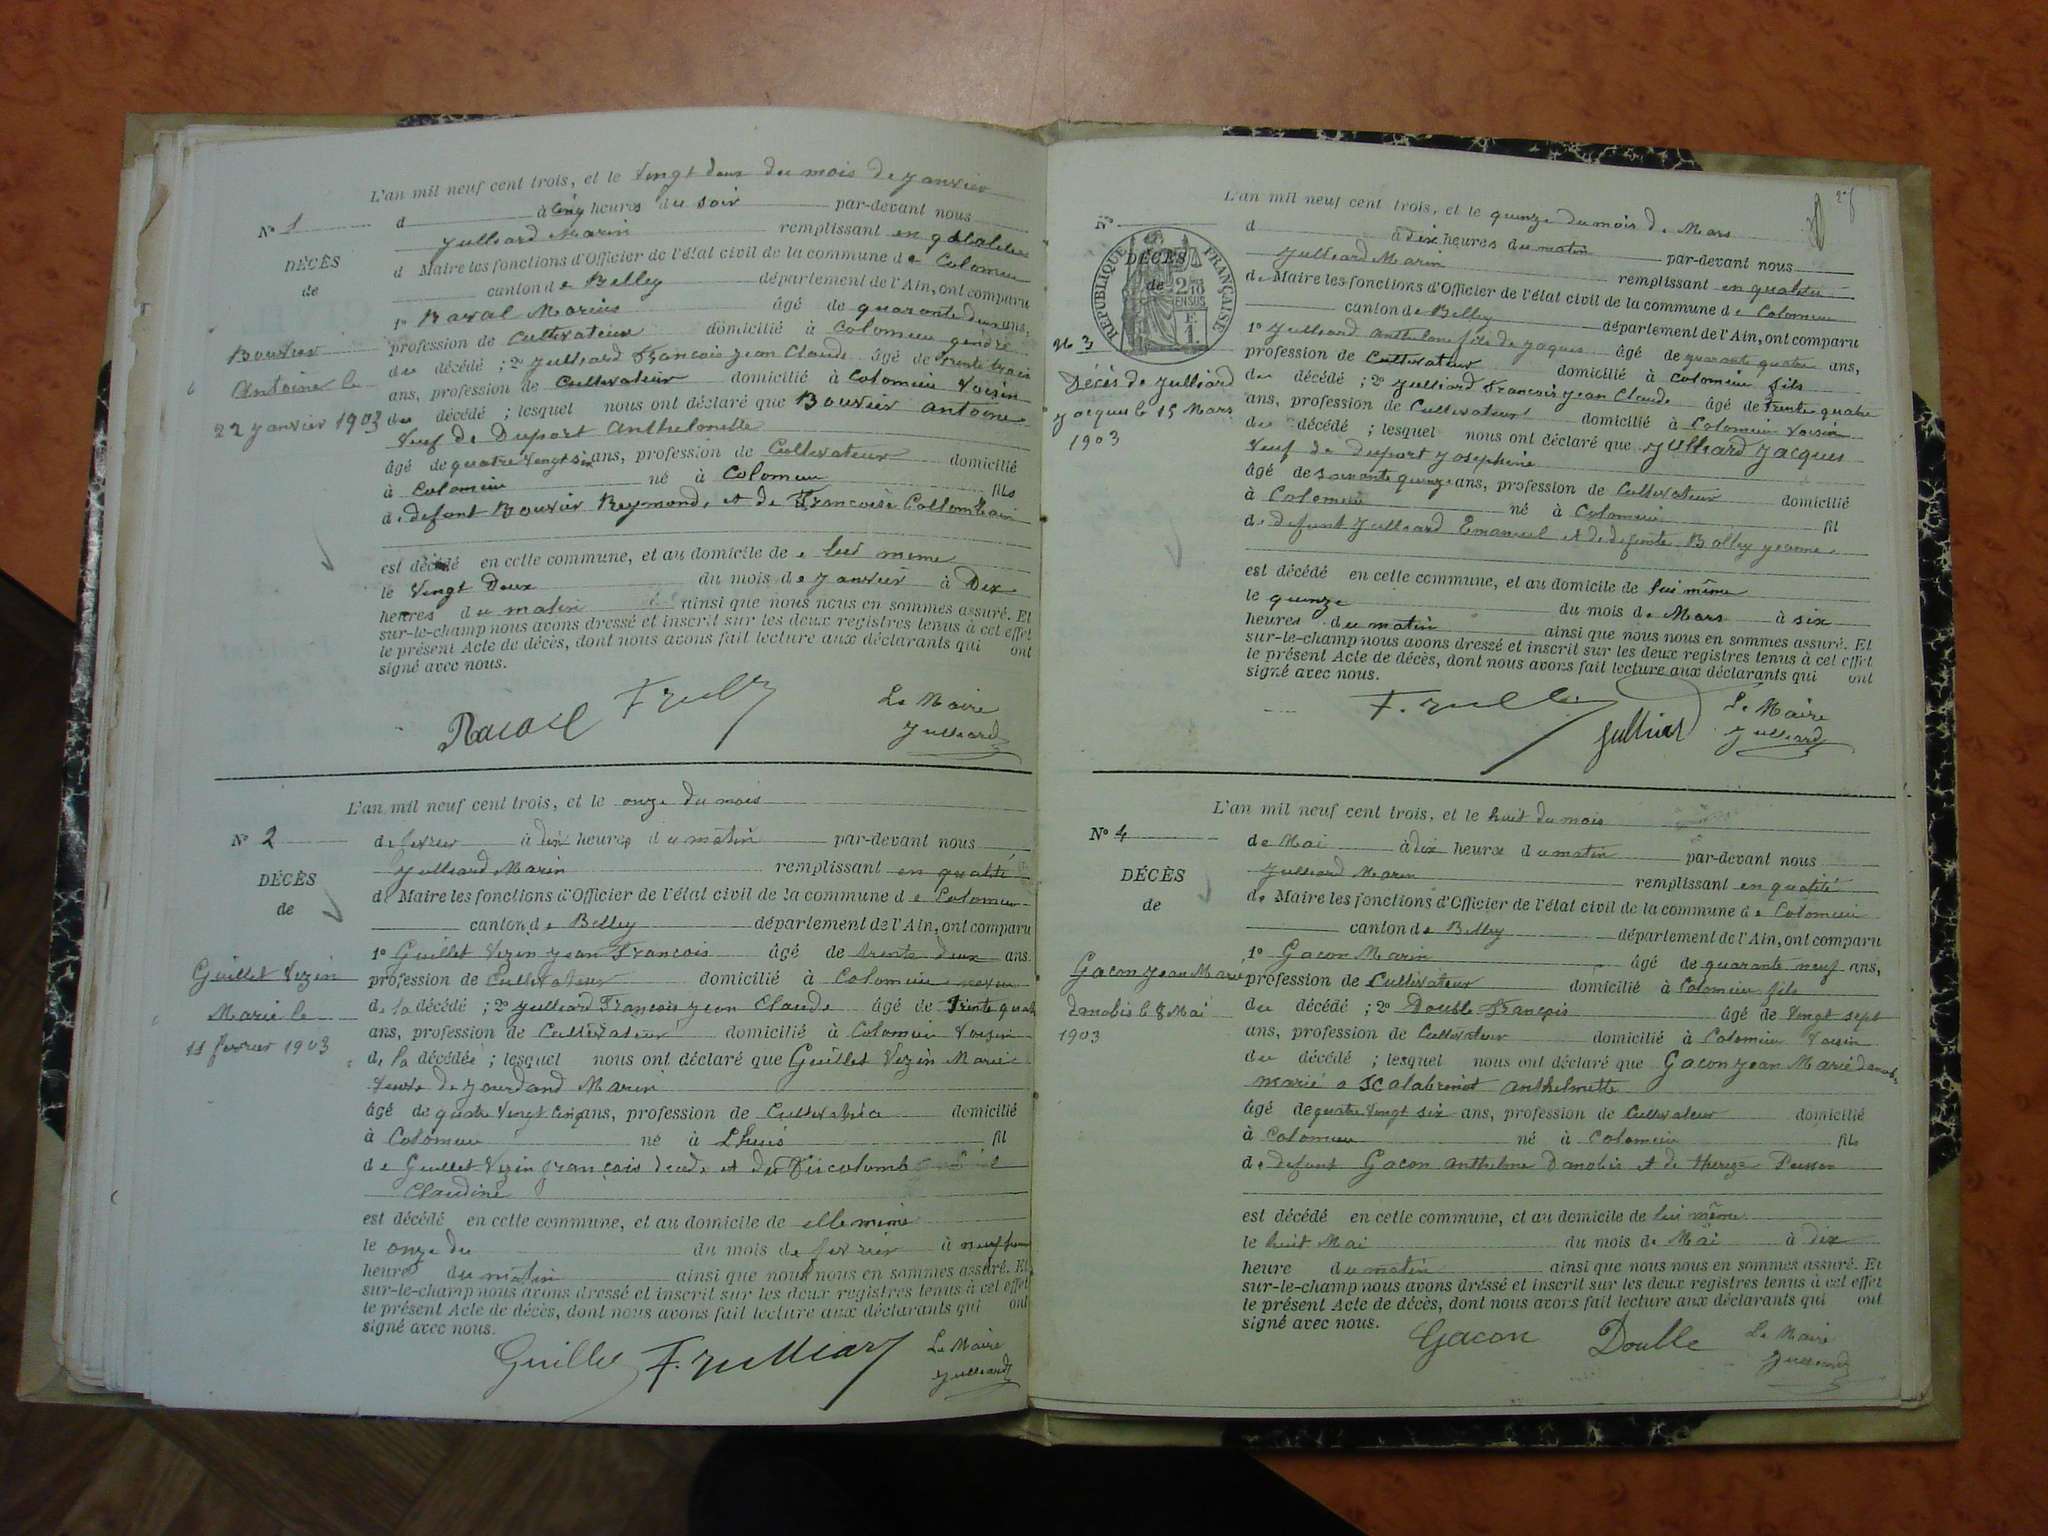 L'an mil neuf cent trois, et le vingt deux du mois de janvier
N° 1
d à cinq heures du soir par-devant nous
Julliard Marin remplissant en qualitée
DÉCÈS
de
d Maire les fonctions d'Officier de l'état civil de la commune de Colomieu
canton de Belley département de l'Ain, ont comparu
1° Raval Marius âgé de quarante deux ans,
profession de Cultivateur domicilié à Colomieu gendre
Bouvier
Antoine le
22 janvier 1903
du décédé ; 2° Julliard François Jean Claude âgé de trente trois
ans, profession de Cultivateur domicilié à Colomieu voisin
du décédé ; lesquel nous ont déclaré que Bouvier Antoine
Veuf de Duport Anthelmette
âgé de quatre vingt six ans, profession de Cultivateur domicilié
à Colomieu né à Colomieu fils
de defunt Bouvier Reymond, et de Françoise Collombain
est décédé en cette commune, et au domicile de lui meme
le Vingt Deux du mois de janvier à Dix
heures du matin ainsi que nous nous en sommes assuré. Et
sur-le-champ nous avons dressé et inscrit sur les deux registres tenus à cet effet
le présent Acte de décès, dont nous avons fait lecture aux déclarants qui ont
signé avec nous.
Le Maire
Julliard
L'an mil neuf cent trois, et le onze du mois
N° 2
de fevrier à dix heures du matin par-devant nous
Julliard Marin remplissant en qualité
DÉCÈS
de
de Maire les fonctions d'Officier de l'état civil de la commune de Colomieu
canton de Belley département de l'Ain, ont comparu
1° Guillet Vezin Jean François âgé de trente deux ans
Guillet Vezin
Marie le
11 fevrier 1903
profession de Cultivateur domicilié à Colomieu neveu
de la décédé ; 2° Julliard François Jean Claude âgé de Trente quat
ans, profession de Cultivateur domicilié à Colomieu Voisin
de la décédée ; lesquel nous ont déclaré que Guillet Vezin Marie
Veuve de Jourdand Marin
âgé de quatre vingt cinq ans, profession de Cultivatrice domicilié
à Colomieu né à Lhuis fil
de Guillet Vezin François decede et de
Claudine
est décédé en cette commune, et au domicile de elle meme
le onze du du mois de fevrier à neuf
heures du matin ainsi que nous nous en sommes assuré. Et
sur-le-champ nous avons dressé et inscrit sur les deux registres tenus à cet effet
le présent Acte de décès, dont nous avons fait lecture aux déclarants qui ont
signé avec nous.
Guillet F. Julliard
Le Maire
Julliard
L'an mil neuf cent trois, et le quinze du mois de Mars
N°
d à dix heures du matin par-devant nous
Julliard Marin remplissant en qualitée
DÉCÈS
de
RÉPUBLIQUE FRANÇAISE
de Maire les fonctions d'Officier de l'état civil de la commune de Colomieu
canton de Belley département de l'Ain, ont comparu
N° 3
Décès de Julliard
Jacques le 15 Mars
1903
1° Julliard Anthelme fils de Jaques âgé de quarante quatre ans,
profession de Cultivateur domicilié à Colomieu fils
du décédé ; 2° Julliard François Jean Claude âgé de Trente quatre
ans, profession de Cultivateur domicilié à Colomieu Voisin
du décédé ; lesquel nous ont déclaré que Julliard Jacques
Veuf de Duport Josephine
âgé de soixante quinze ans, profession de Cultivateur domicilié
à Colomieu né à Colomieu fil
de defunt Julliard Emanuel et de defunte Jeanne
est décédé en cette commune, et au domicile de lui même
le quinze du mois de Mars à six
heures du matin ainsi que nous nous en sommes assuré. Et
sur-le-champ nous avons dressé et inscrit sur les deux registres tenus à cet effet
le présent Acte de décès, dont nous avons fait lecture aux déclarants qui ont
signé avec nous.
Julliard
Le Maire
Julliard
L'an mil neuf cent trois, et le huit du mois
N° 4
de Mai à dix heures du matin par-devant nous
Julliard Marin remplissant en qualité
DÉCÈS
de
de Maire les fonctions d'Officier de l'état civil de la commune de Colomieu
canton de Belley département de l'Ain, ont comparu
1° Gacon Marin âgé de quarante neuf ans,
Gacon Jean Marie
danobis le 8 Mai
1903
profession de Cultivateur domicilié à Colomieu fils
du décédé ; 2° Double François âgé de Vingt sept
ans, profession de Cultivateur domicilié à Colomieu Voisin
du décédé ; lesquel nous ont déclaré que Gacon Jean Marie danobis
marié a Anthelmette
âgé de quatre Vingt six ans, profession de Cultivateur domicilié
à Colomieu né à Colomieu fils
de defunt Gacon Anthelme Danobis et de
est décédé en cette commune, et au domicile de lui même
le huit Mai du mois de Mai à dix
heure du matin ainsi que nous nous en sommes assuré. Et
sur-le-champ nous avons dressé et inscrit sur les deux registres tenus à cet effet
le présent Acte de décès, dont nous avons fait lecture aux déclarants qui ont
signé avec nous.
Gacon Double
Le Maire
Julliard